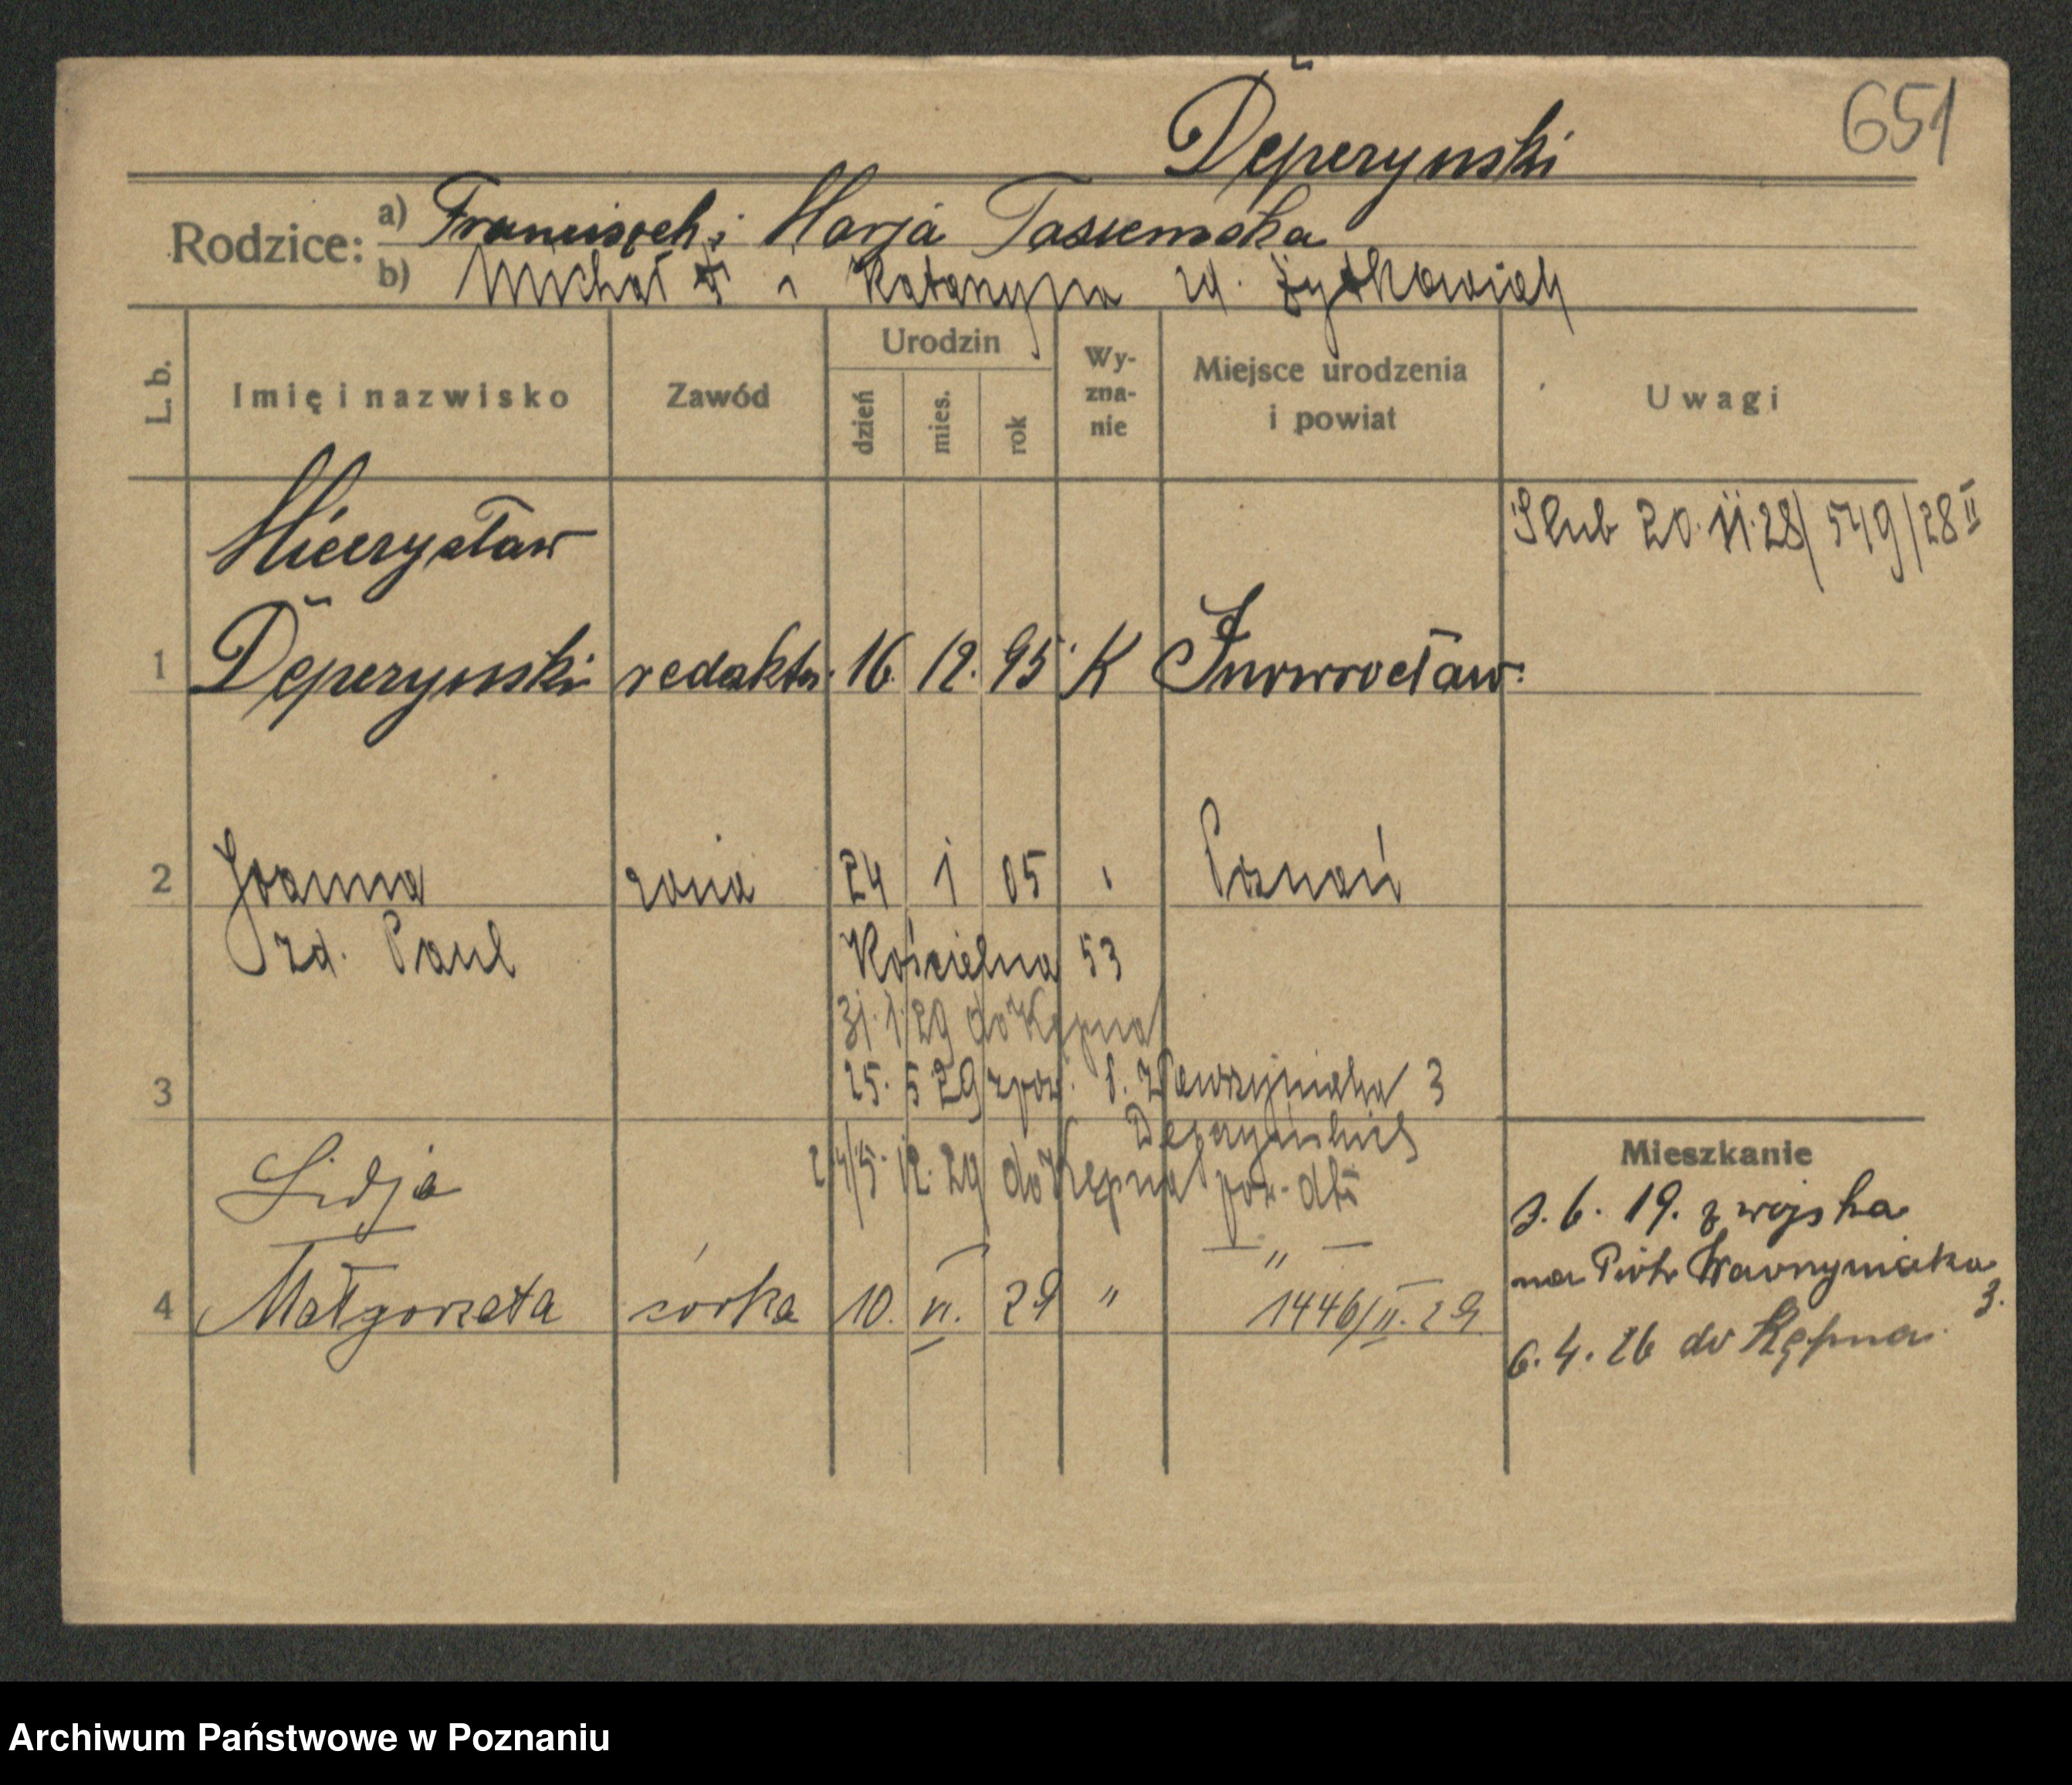 651
Depczynski
Rodzice: a) Franciszek i Marja Tasiemska
b) Michał i Katarzyna rd. Żytkowiak
L. b. Imię i nazwisko Zawód Urodzin dzień mies. rok Wyznanie Miejsce urodzenia i powiat Uwagi
Slub 20.11.28/549/28 II
Mieczysław
1 Depczynski redaktor 16. 12. 95 K Inowrocław
2 Joanna żona 24 1 05 Poznań
zd. Paul Kościelna 53
31.1.29 do Kępna
3 15. 5 29 z pow. P. Wawrzyniaka 3
12. 29 do Kępna
Mieszkanie
Lidja
3. 6. 19. z wojska
na Piotr Wawrzyniaka
3.
4 Małgorzata córka 10. VI. 29 " " 1446/II. 29
6. 4. 26 do Kępna
Archiwum Państwowe w Poznaniu